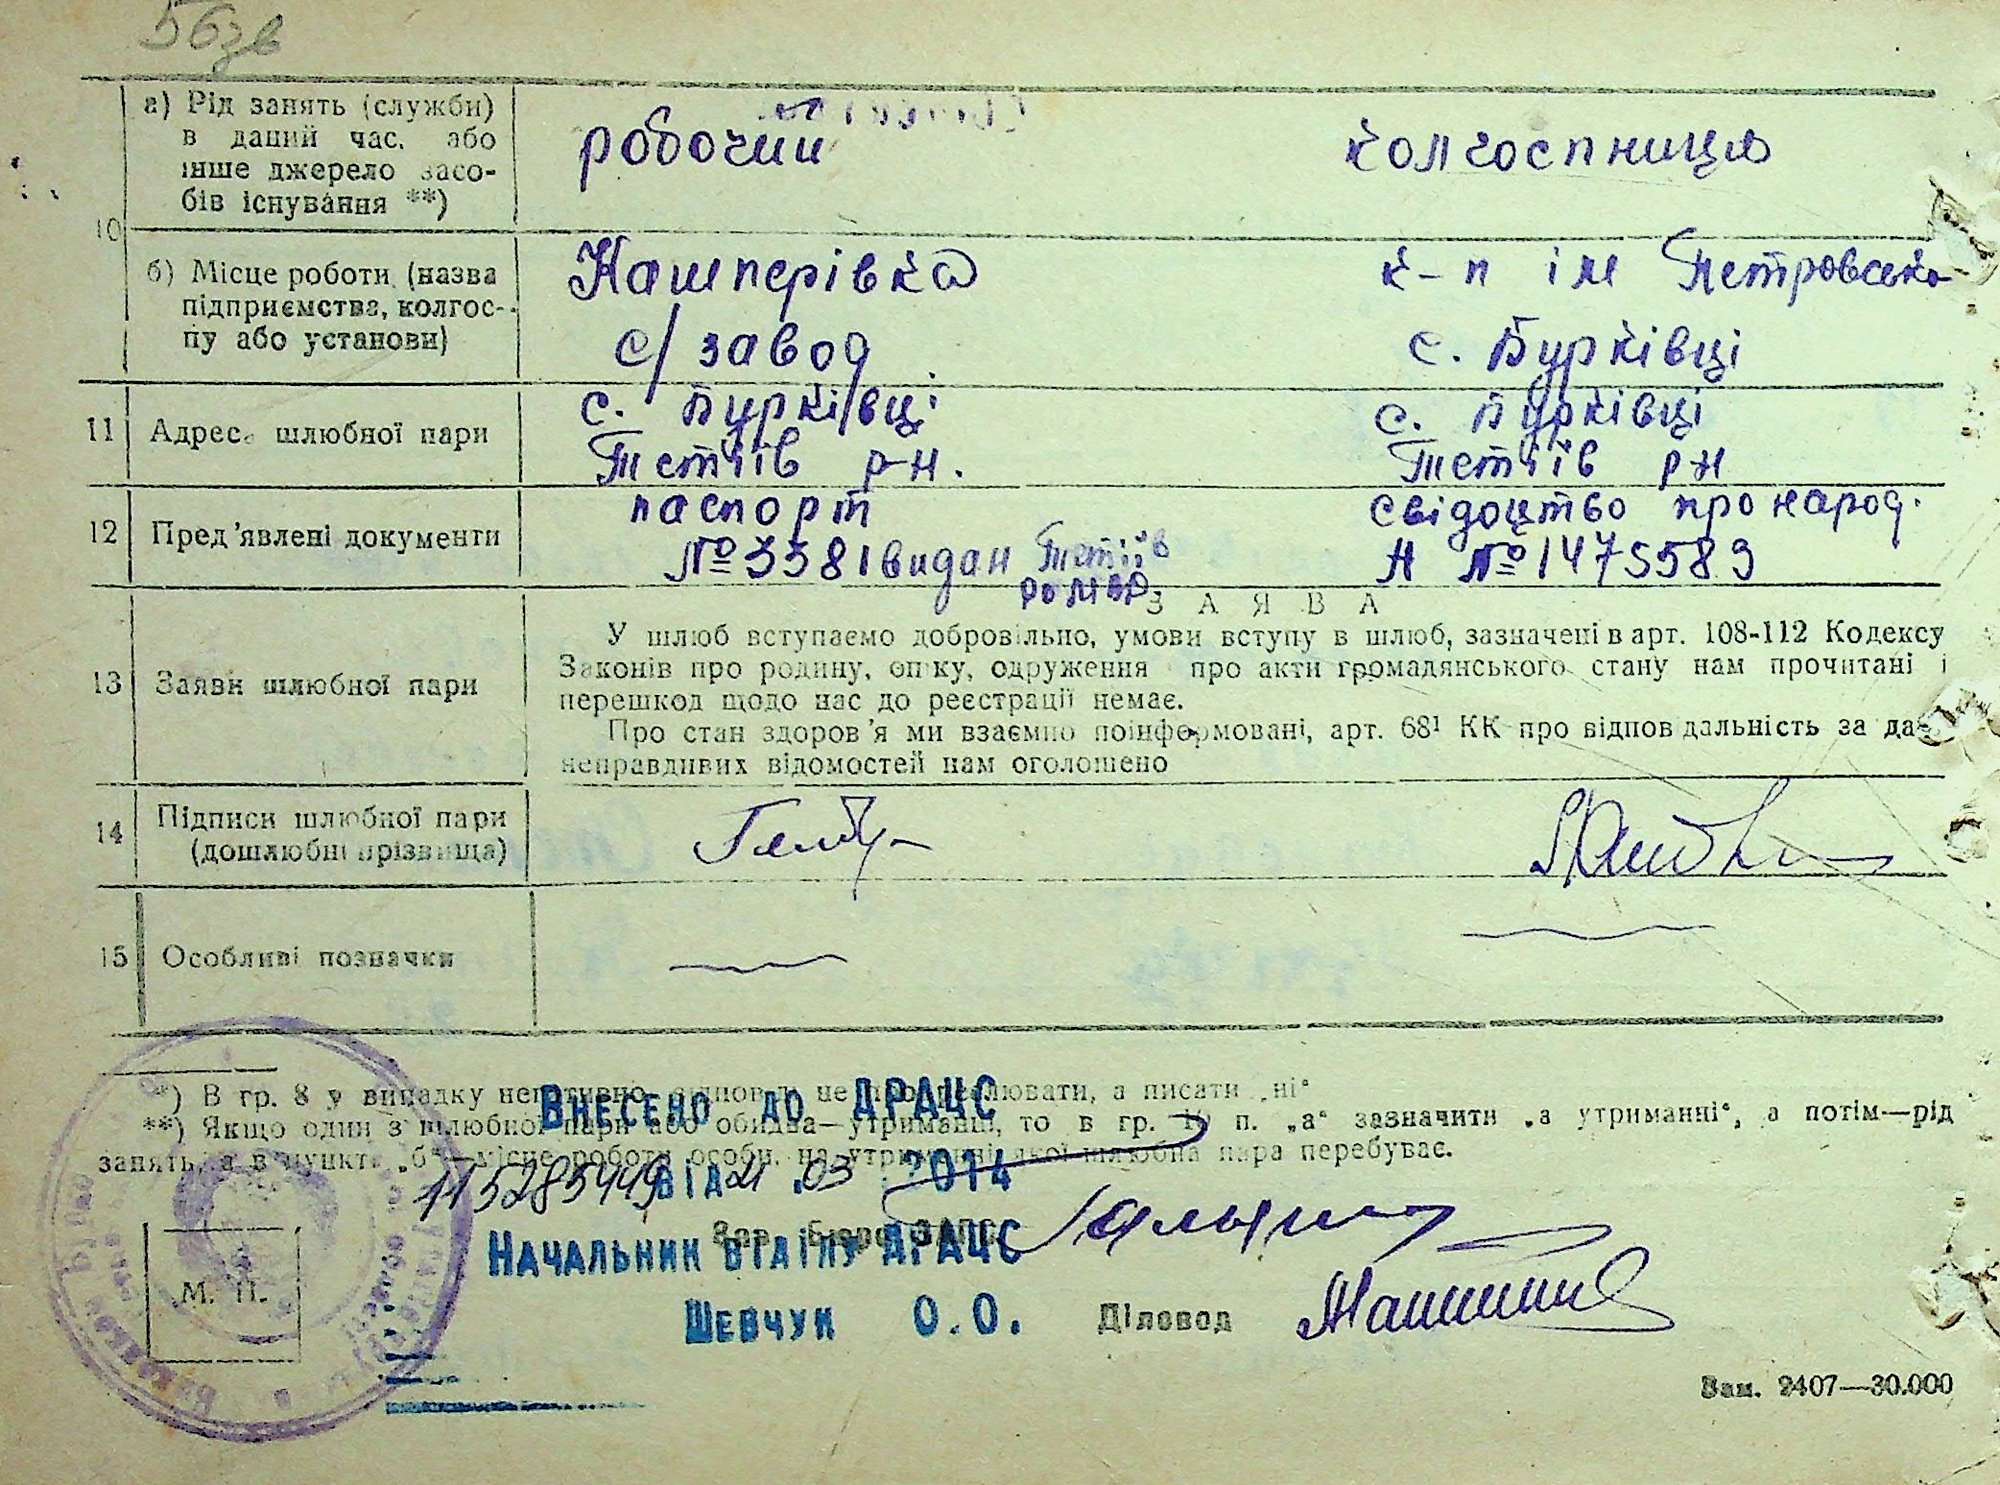 56зв
а) Рід занять (служби)
в даний час, або
інше джерело засо-
бів існування **)
робочий
колгоспниця
10
б) Місце роботи (назва
підприємства, колгос-
пу або установи)
Кашперівка
с/завод
к-п ім Петровсько
с. Бурківці
11
Адреса шлюбної пари
с. Бурківці
Тетіїв р-н.
с. Бурківці
Тетіїв р-н
12
Пред'явлені документи
паспорт
№ 3381 видан Тетіїв
свідоцтво про народ.
№ 1475583
З А Я В А
13
Заяви шлюбної пари
У шлюб вступаємо добровільно, умови вступу в шлюб, зазначені в арт. 108-112 Кодексу
Законів про родину, опіку, одруження про акти громадянського стану нам прочитані і
перешкод щодо нас до реєстрації немає.
Про стан здоров'я ми взаємно поінформовані, арт. 68¹ КК про відповідальність за да-
неправдивих відомостей нам оголошено
14
Підписи шлюбної пари
(дошлюбні прізвища)
15
Особливі позначки
*) В гр. 8 у випадку негативно, відповідь не прокреслювати, а писати „ні“
**) Якщо один з шлюбної пари або обидва—утриманці, то в гр. 10 п. „а“ зазначити „а утриманні“, а потім—рід
занять, а в пункті „б“—місце роботи особи, на утриманні якої шлюбна пара перебуває.
Внесено до ДРАЦС
115285449 від 21.03 2014
Зав. Бюро ЗАГС
Начальник відділу ДРАЦС
Шевчук О.О.
М. П.
Діловод
Зам. 2407—30.000